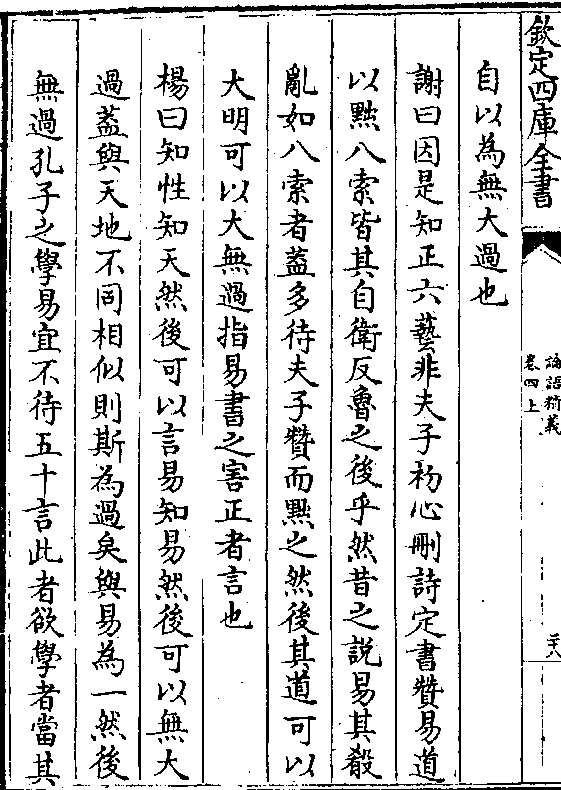 欽定四庫全書
論語精義
卷四上
二十八
自以為無大過也
謝曰因是知正六藝非夫子初心刪詩定書贊易道
以黜八索皆其自衛反魯之後乎然昔之説易其殽
亂如八索者蓋多待夫子贊而黜之然後其道可以
大明可以大無過指易書之害正者言也
楊曰知性知天然後可以言易知易然後可以無大
過蓋與天地不同相似則斯為過矣與易為一然後
無過孔子之學易宜不待五十言此者欲學者當其